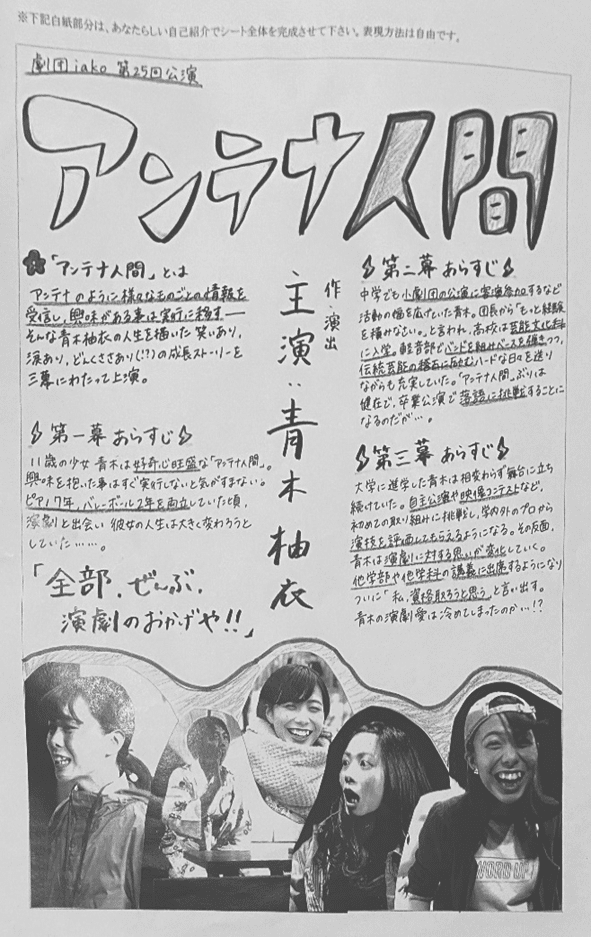 ※下記白紙部分は、あなたらしい自己紹介でシート全体を完成させて下さい。表現方法は自由です。
劇団iako 第25回公演
アンテナ人間
「アンテナ人間」とは
アンテナのように様々なものごとの情報を
受信し、興味がある事は実行に移すー
そんな青木柚衣の人生を描いた笑いあり、
涙あり、どんくささあり(!?)の成長ストーリーを
三幕にわたって上演。
第一幕 あらすじ
11歳の少女 青木は好奇心旺盛な「アンテナ人間」。
興味を抱いた事はすぐ実行しないと気がすまない。
ピアノ7年、バレーボール2年を両立していた頃、
演劇と出会い 彼女の人生は大きく変わろうと
していた……。
「全部、ぜんぶ、
演劇のおかげや!!」
作・演出
主演:青木柚衣
第二幕 あらすじ
中学でも小劇団の公演に客演参加するなど
活動の幅を広げていた青木。団長から「もっと経験
を積みなさい。」と言われ、高校は芸能文化科
に入学。軽音部でバンドを組みベースを弾きつつ、
伝統芸能の稽古に励むハードな日々を送り
ながらも充実していた。「アンテナ人間」ぶりは
健在で、卒業公演で落語に挑戦することに
なるのだが…。
第三幕 あらすじ
大学に進学した青木は相変わらず舞台に立ち
続けていた。自主公演や映像コンテストなど、
初めての取り組みに挑戦し、学内外のプロから
演技を評価してもらえるようになる。その反面、
青木は演劇に対する思いが変化していく。
他学部や他学科の講義に出席するようになり
ついに「私、資格取ろうと思う」と言い出す。
青木の演劇愛は冷めてしまったのか…!?
WORD UP!